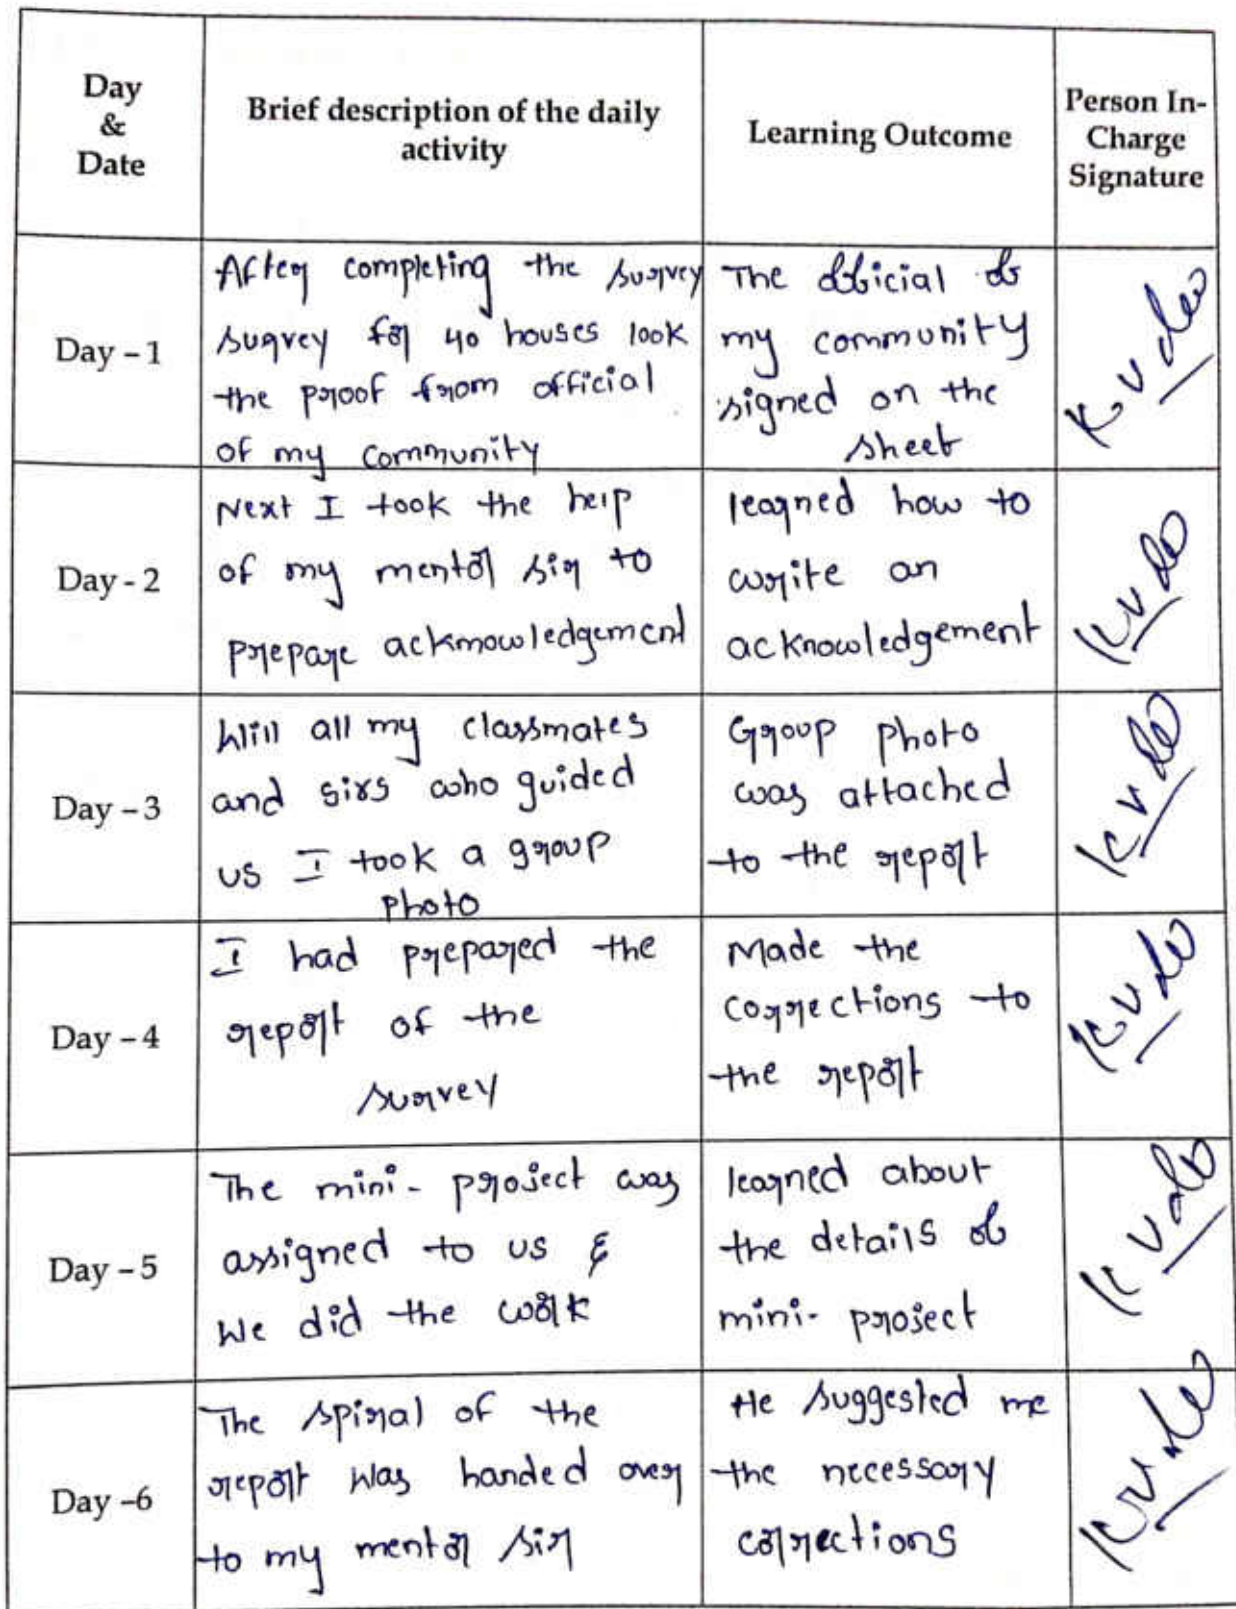 Day
&
Date
Brief description of the daily
activity
Learning Outcome
Person In-
Charge
Signature
Day – 1
After completing the survey
survey for 40 houses look
the proof from official
of my community
The official of
my community
signed on the
sheet
Day - 2
Next I took the help
of my mentor sir to
prepare acknowledgement
learned how to
write an
acknowledgement
Day – 3
With all my classmates
and sirs who guided
us I took a group
photo
Group photo
was attached
to the report
Day – 4
I had prepared the
report of the
survey
Made the
corrections to
the report
Day – 5
The mini- project was
assigned to us &
We did the work
learned about
the details of
mini- project
Day –6
The spiral of the
report was handed over
to my mentor sir
He suggested me
the necessary
corrections